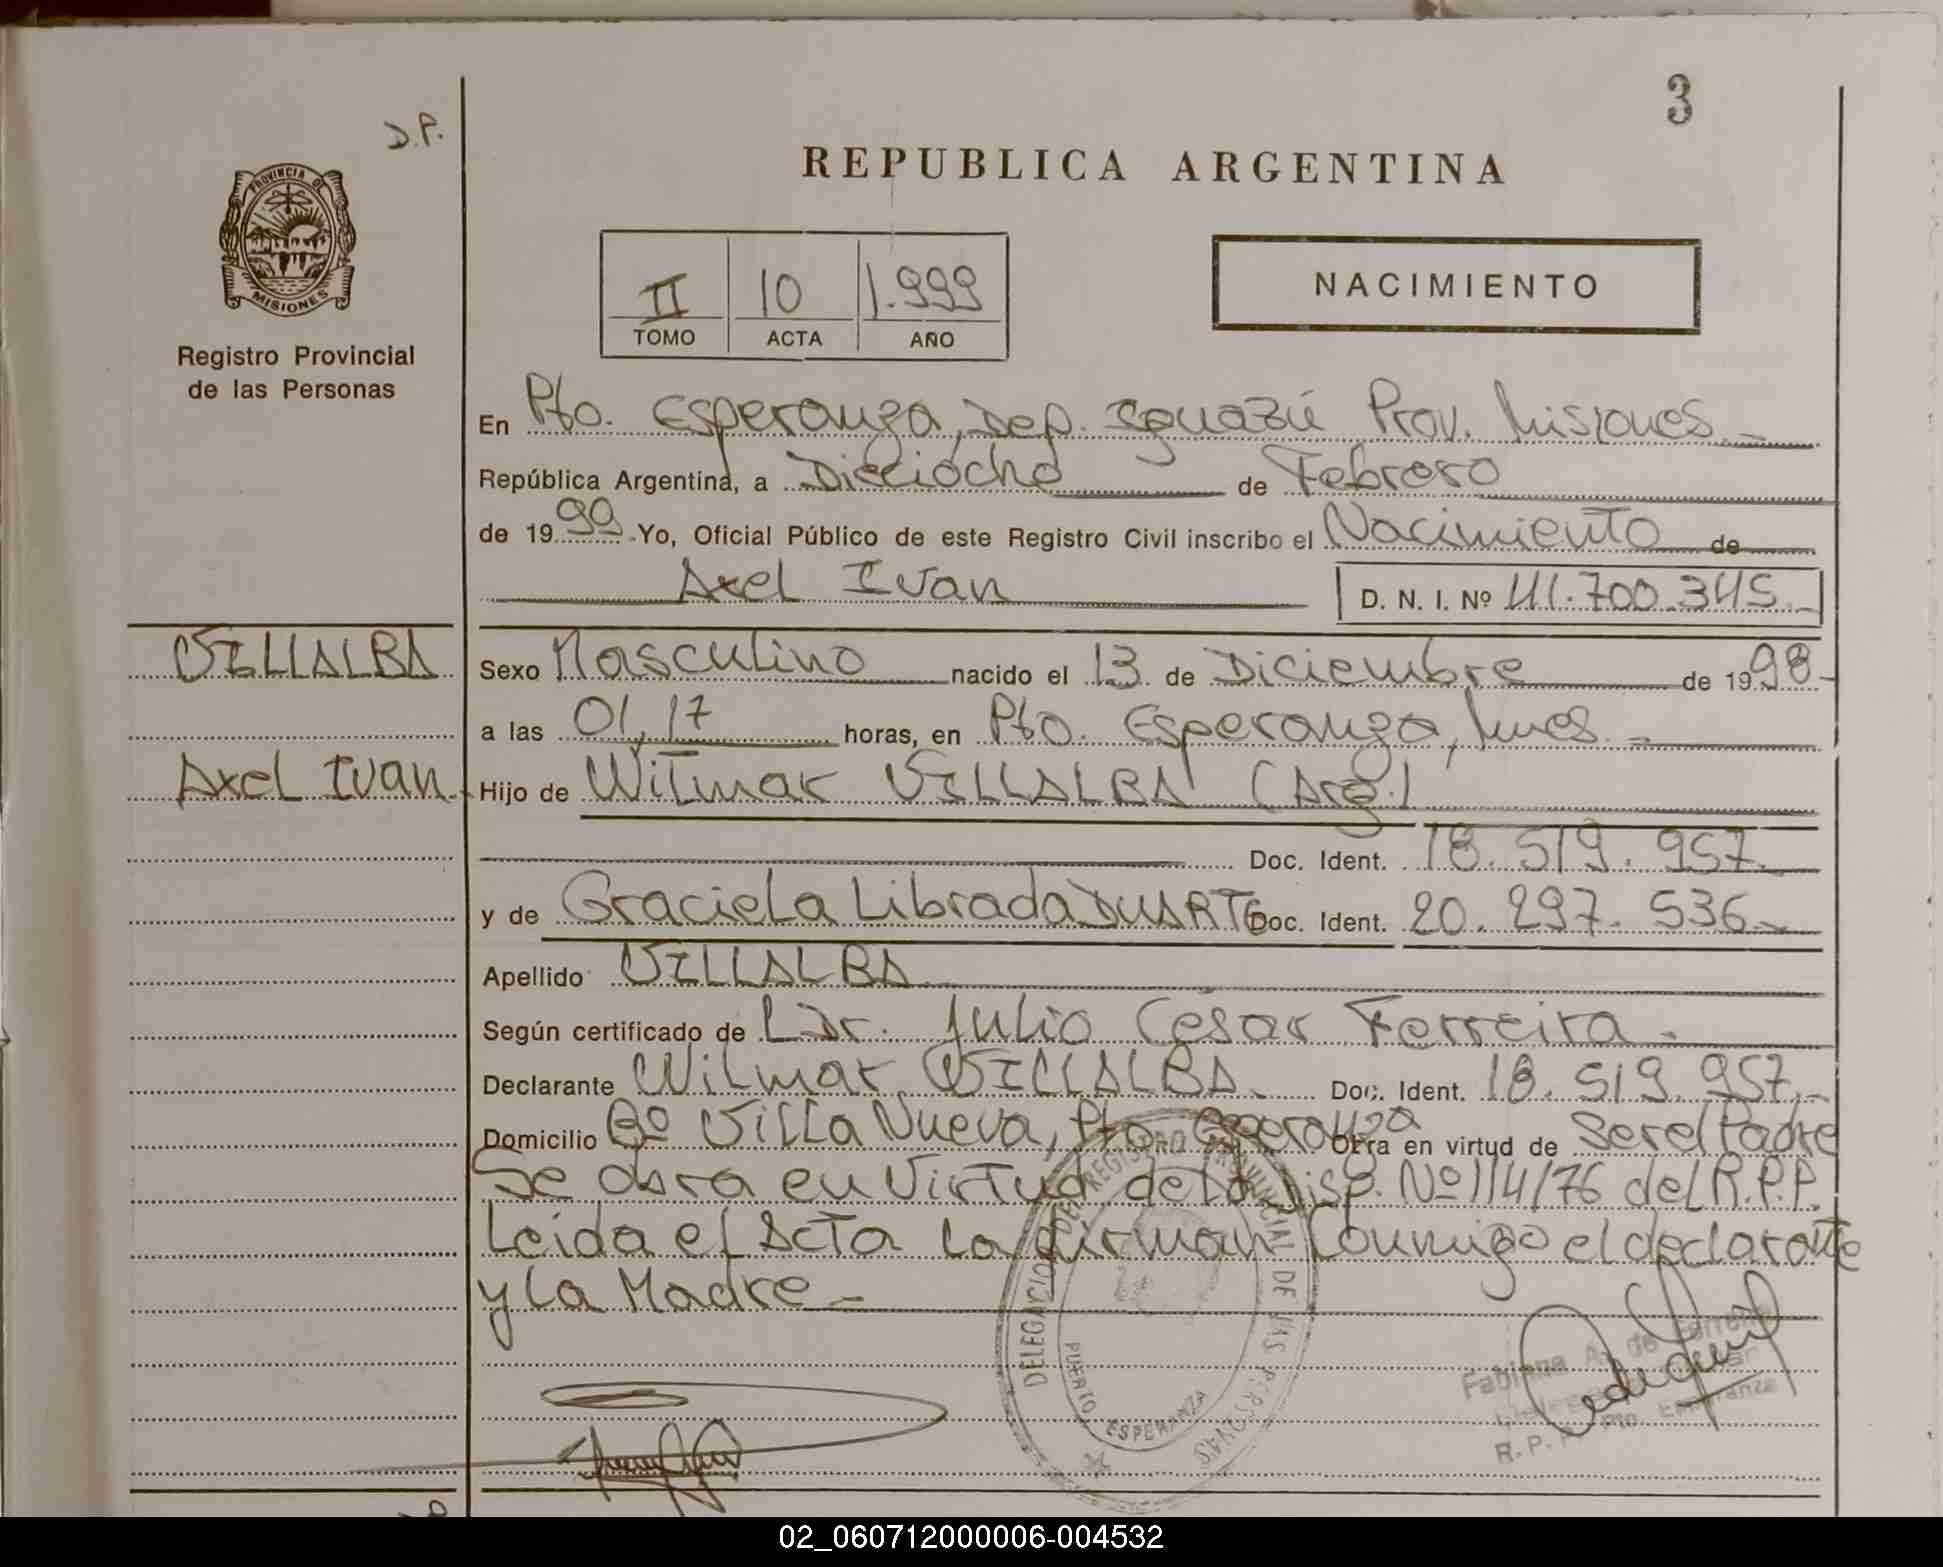 3
D.P.
REPUBLICA ARGENTINA
PROVINCIA DE
MISIONES
II 10 1.999
TOMO ACTA AÑO
NACIMIENTO
Registro Provincial
de las Personas
En Pto. Esperanza, Dep. Iguazú Prov. Misiones
República Argentina, a Dieciocho de Febrero
de 1999 Yo, Oficial Público de este Registro Civil inscribo el Nacimiento de
Axel Ivan D. N. I. Nº 41.700.345
VILLALBA Sexo Masculino nacido el 13 de Diciembre de 1998
a las 01,17 horas, en Pto. Esperanza, Mnes.
Axel Ivan Hijo de Wilmar VILLALBA (Arg.)
Doc. Ident. 18.519.957
y de Graciela Librada DUARTE Doc. Ident. 20.297.536
Apellido VILLALBA
Según certificado de Dr. Julio César Ferreira
Declarante Wilmar VILLALBA Doc. Ident. 18.519.957
Domicilio Bº Villa Nueva, Pto. Esperanza Obra en virtud de Ser el Padre
Se obra en Virtud de la Disp. Nº 114/76 del R.P.P.
Leida el Acta la firman Conmigo el declarante
y la Madre
DELEGACION DEL REGISTRO PROVINCIAL DE LAS PERSONAS
PUERTO ESPERANZA
Fabiana A. de Ferreira
Pto. Esperanza
R. P. P.
02_060712000006-004532